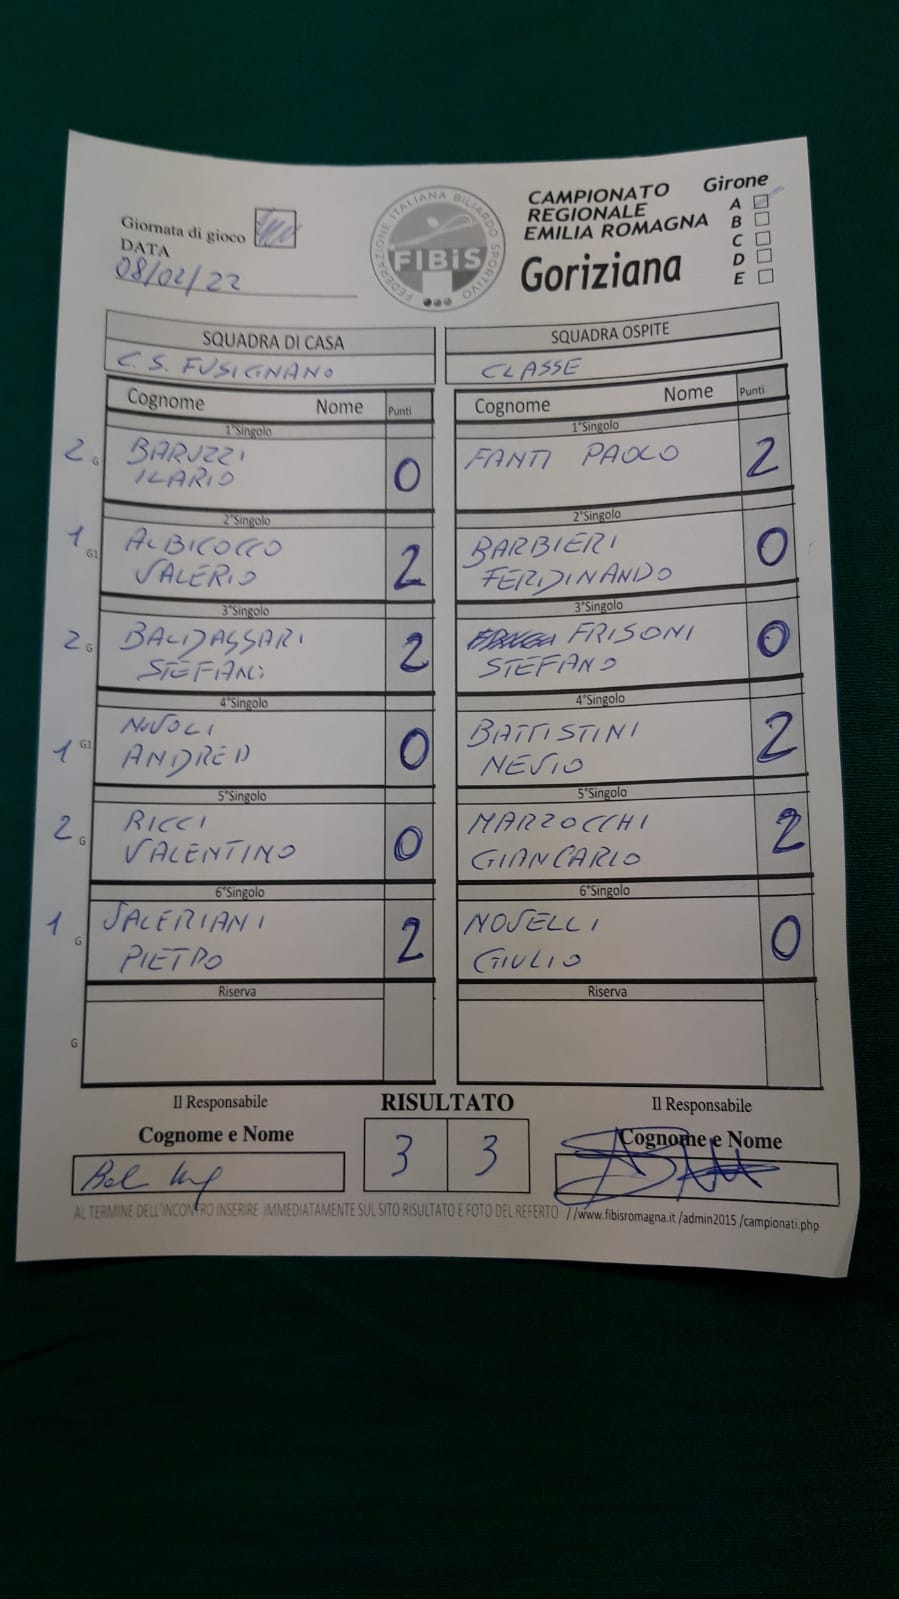 Giornata di gioco
DATA
08/02/22
FEDERAZIONE ITALIANA BILIARDO SPORTIVO
FIBiS
CAMPIONATO
REGIONALE
EMILIA ROMAGNA
Goriziana
Girone
A
B
C
D
E
SQUADRA DI CASA
C.S. FUSIGNANO
SQUADRA OSPITE
CLASSE
Cognome Nome Punti
Cognome Nome Punti
1°Singolo
2 G BARUZZI
ILARIO 0
1°Singolo
FANTI PAOLO 2
2°Singolo
1 G1 ALBICOCCO
VALERIO 2
2°Singolo
BARBIERI
FERDINANDO 0
3°Singolo
2 G BALDASSARI
STEFANO 2
3°Singolo
FRISONI
STEFANO 0
4°Singolo
1 G1 NIVOLI
ANDREA 0
4°Singolo
BATTISTINI
NEVIO 2
5°Singolo
2 G RICCI
VALENTINO 0
5°Singolo
MARZOCCHI
GIANCARLO 2
6°Singolo
1 G VALERIANI
PIETRO 2
6°Singolo
NOVELLI
GIULIO 0
Riserva
G
Riserva
Il Responsabile
Cognome e Nome
RISULTATO
3 3
Il Responsabile
Cognome e Nome
AL TERMINE DELL'INCONTRO INSERIRE IMMEDIATAMENTE SUL SITO RISULTATO E FOTO DEL REFERTO //www.fibisromagna.it /admin2015 /campionati.php